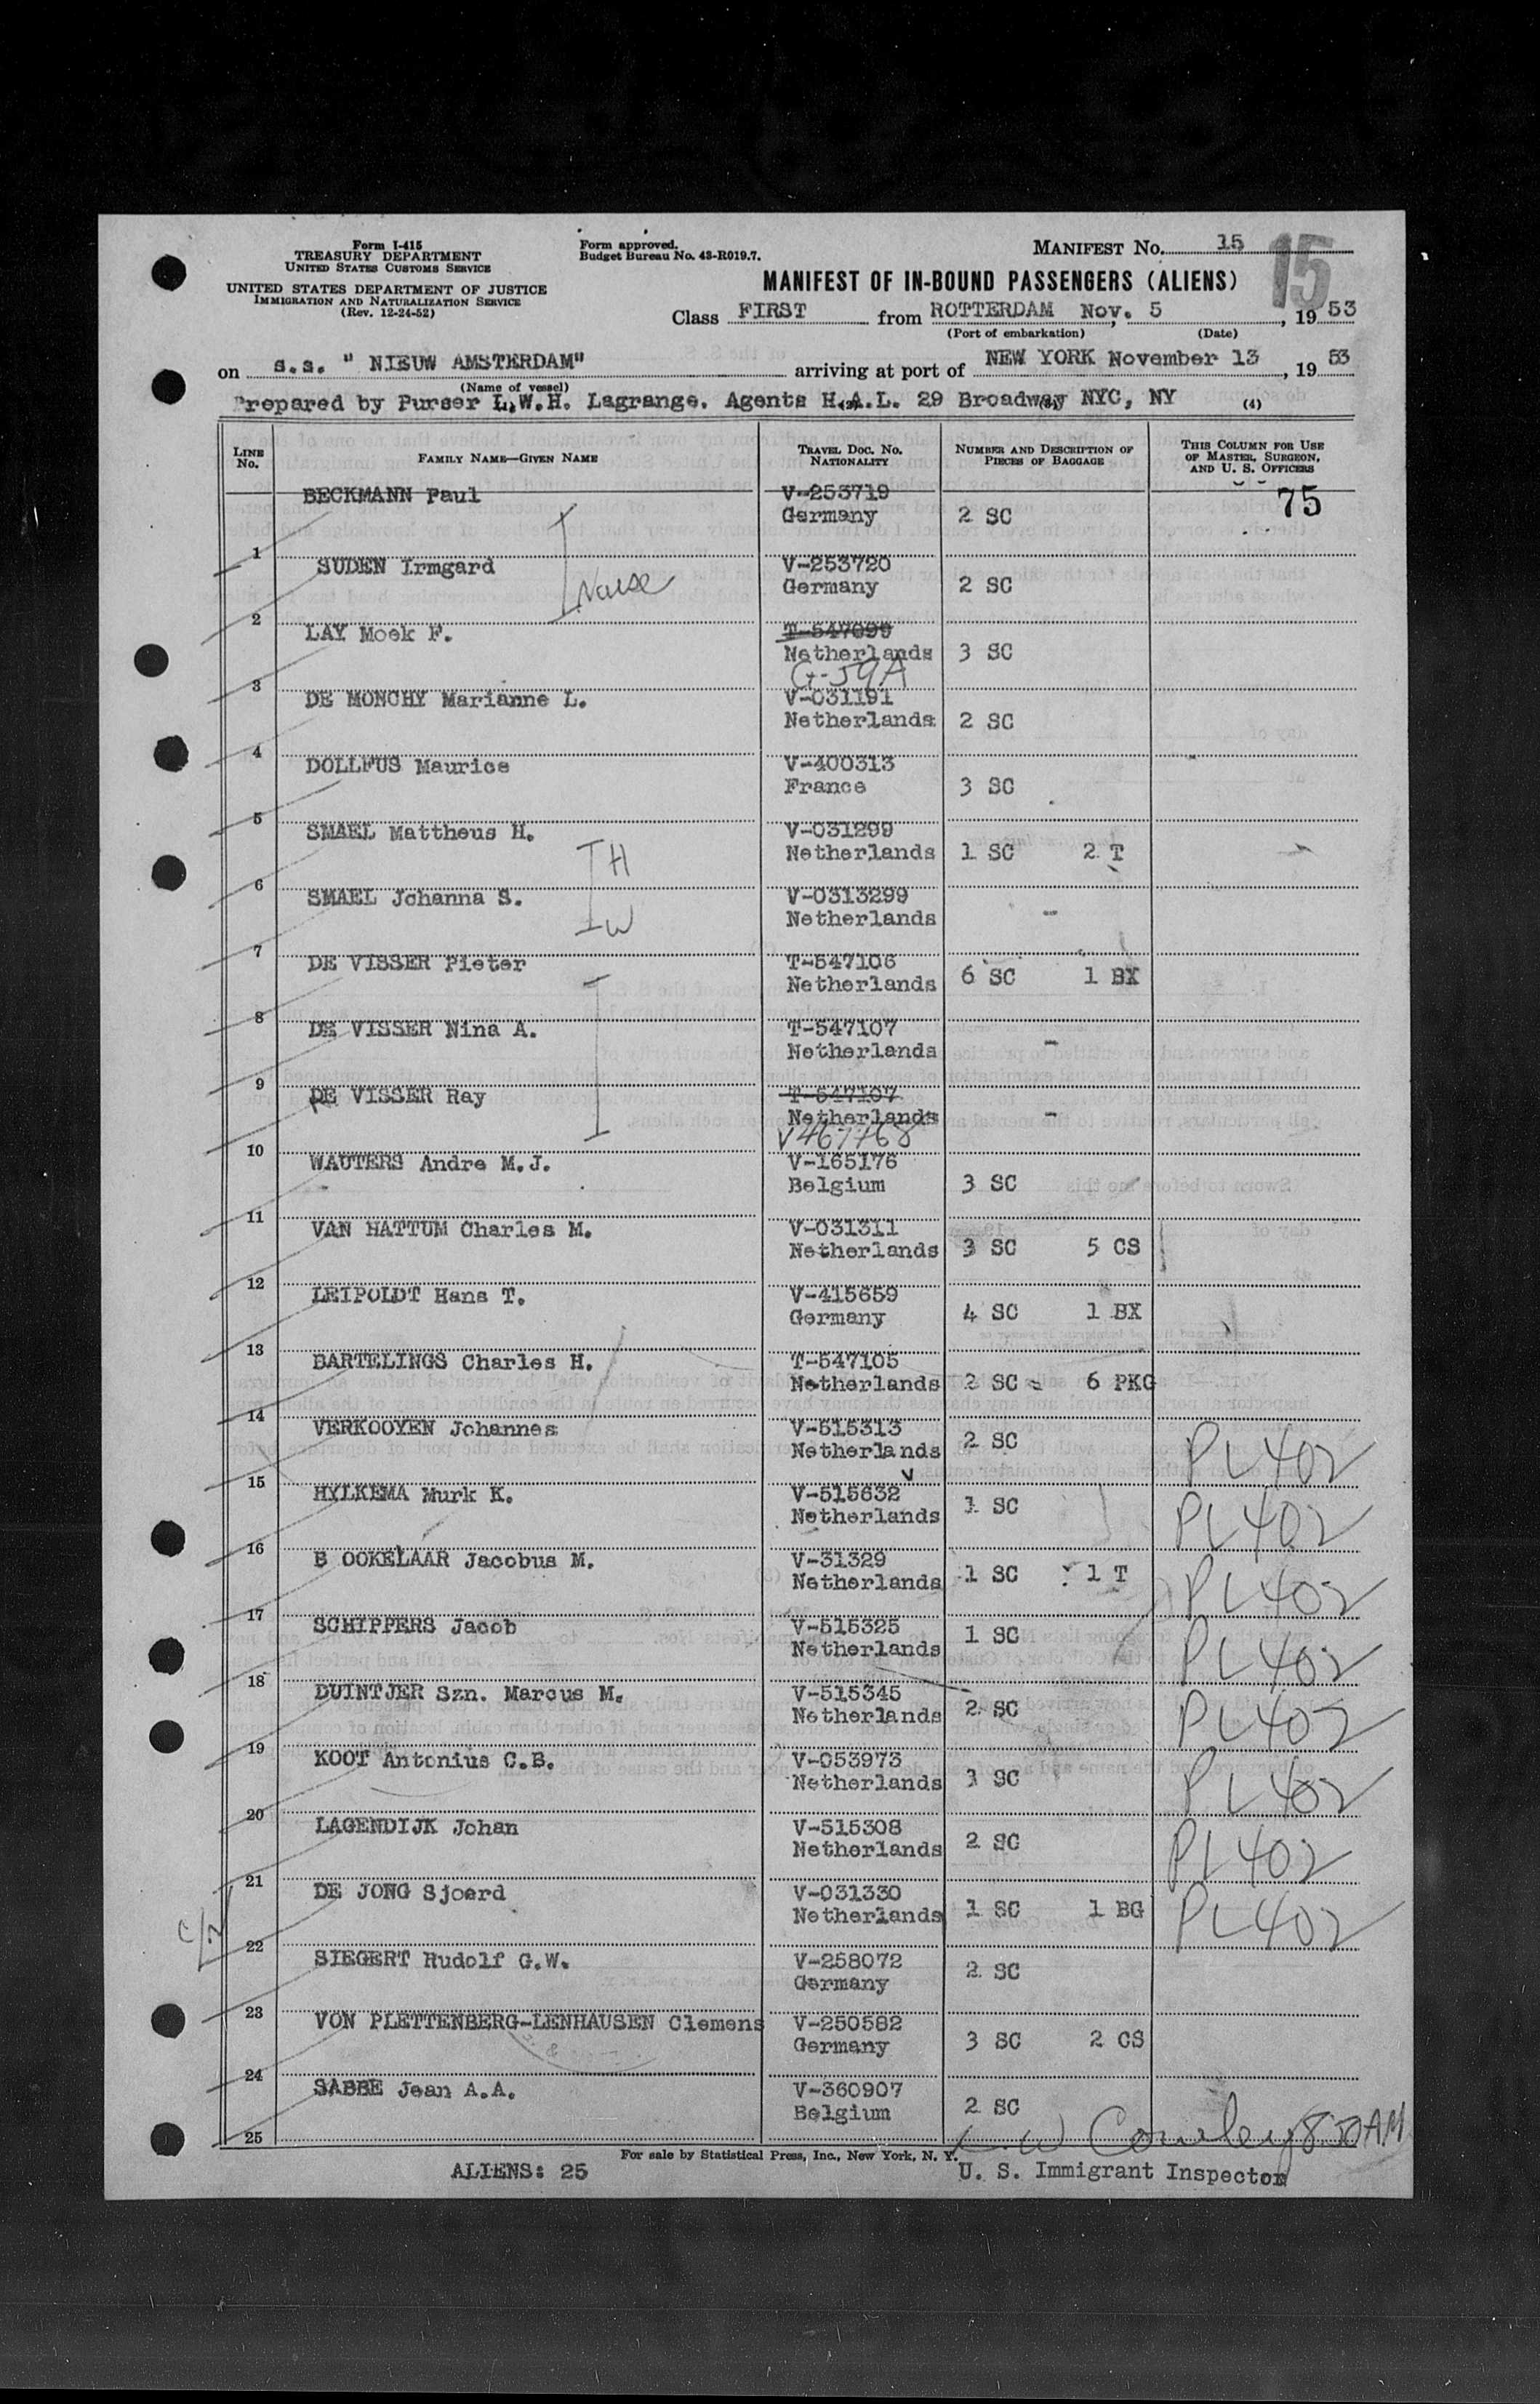 Form I-415
TREASURY DEPARTMENT
UNITED STATES CUSTOMS SERVICE
UNITED STATES DEPARTMENT OF JUSTICE
IMMIGRATION AND NATURALIZATION SERVICE
(Rev. 12-24-52)
Form approved.
Budget Bureau No. 43-R019.7.
MANIFEST No. 15
15
MANIFEST OF IN-BOUND PASSENGERS (ALIENS)
Class FIRST from ROTTERDAM Nov. 5, 1953
(Port of embarkation) (Date)
on s.s. " NIEUW AMSTERDAM" arriving at port of NEW YORK November 13, 1953
(Name of vessel)
Prepared by Purser L.W.H. Lagrange. Agents H.A.L. 29 Broadway NYC, NY (4)
LINE No. FAMILY NAME—GIVEN NAME TRAVEL DOC. NO. NATIONALITY NUMBER AND DESCRIPTION OF PIECES OF BAGGAGE THIS COLUMN FOR USE OF MASTER, SURGEON, AND U. S. OFFICERS
BECKMANN Paul V-253719 75
Germany 2 SC
1
SUDEN Irmgard V-253720
Nurse Germany 2 SC
2
LAY Moek F. T-547099
Netherlands 3 SC
G-59A
3
DE MONCHY Marianne L. V-031191
Netherlands 2 SC
4
DOLLFUS Maurice V-400313
France 3 SC
5
SMAEL Mattheus H. V-031299
H Netherlands 1 SC 2 T
6
SMAEL Johanna S. V-0313299
W Netherlands -
7
DE VISSER Pieter T-547106
Netherlands 6 SC 1 BX
8
DE VISSER Nina A. T-547107
Netherlands -
9
DE VISSER Ray T-547107
Netherlands -
V467768
10
WAUTERS Andre M.J. V-165176
Belgium 3 SC
11
VAN HATTUM Charles M. V-031311
Netherlands 3 SC 5 CS
12
LEIPOLDT Hans T. V-415659
Germany 4 SC 1 BX
13
BARTELINGS Charles H. T-547105
Netherlands 2 SC 6 PKG
14
VERKOOYEN Johannes V-515313
Netherlands 2 SC PL 402
15
HYLKEMA Murk K. V-515632
Netherlands 1 SC PL 402
16
B OOKELAAR Jacobus M. V-31329
Netherlands 1 SC 1 T PL 402
17
SCHIPPERS Jacob V-515325
Netherlands 1 SC PL 402
18
DUINTJER Szn. Marcus M. V-515345
Netherlands 2 SC PL 402
19
KOOT Antonius C.B. V-053973
Netherlands 3 SC PL 402
20
LAGENDIJK Johan V-515308
Netherlands 2 SC PL 402
21
DE JONG Sjoerd V-031330
Netherlands 1 SC 1 BG PL 402
22
SIEGERT Rudolf G.W. V-258072
Germany 2 SC
23
VON PLETTENBERG-LENHAUSEN Clemens V-250582
Germany 3 SC 2 CS
24
SABBE Jean A.A. V-360907
Belgium 2 SC
25
W Cowley 850AM
For sale by Statistical Press, Inc., New York, N. Y.
ALIENS: 25 U. S. Immigrant Inspector